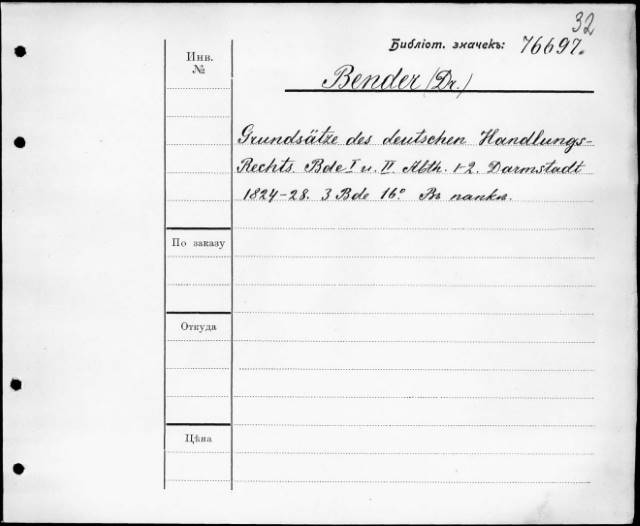 32
Библіот. значекъ: 76697.
Инв.
№
Bender (Dr.)
Grundsätze des deutschen Handlungs-
Rechts. Bde I u. II Abth. 1-2. Darmstadt
1824-28. 3 Bde 16° Въ папкѣ.
По заказу
Откуда
Цѣна